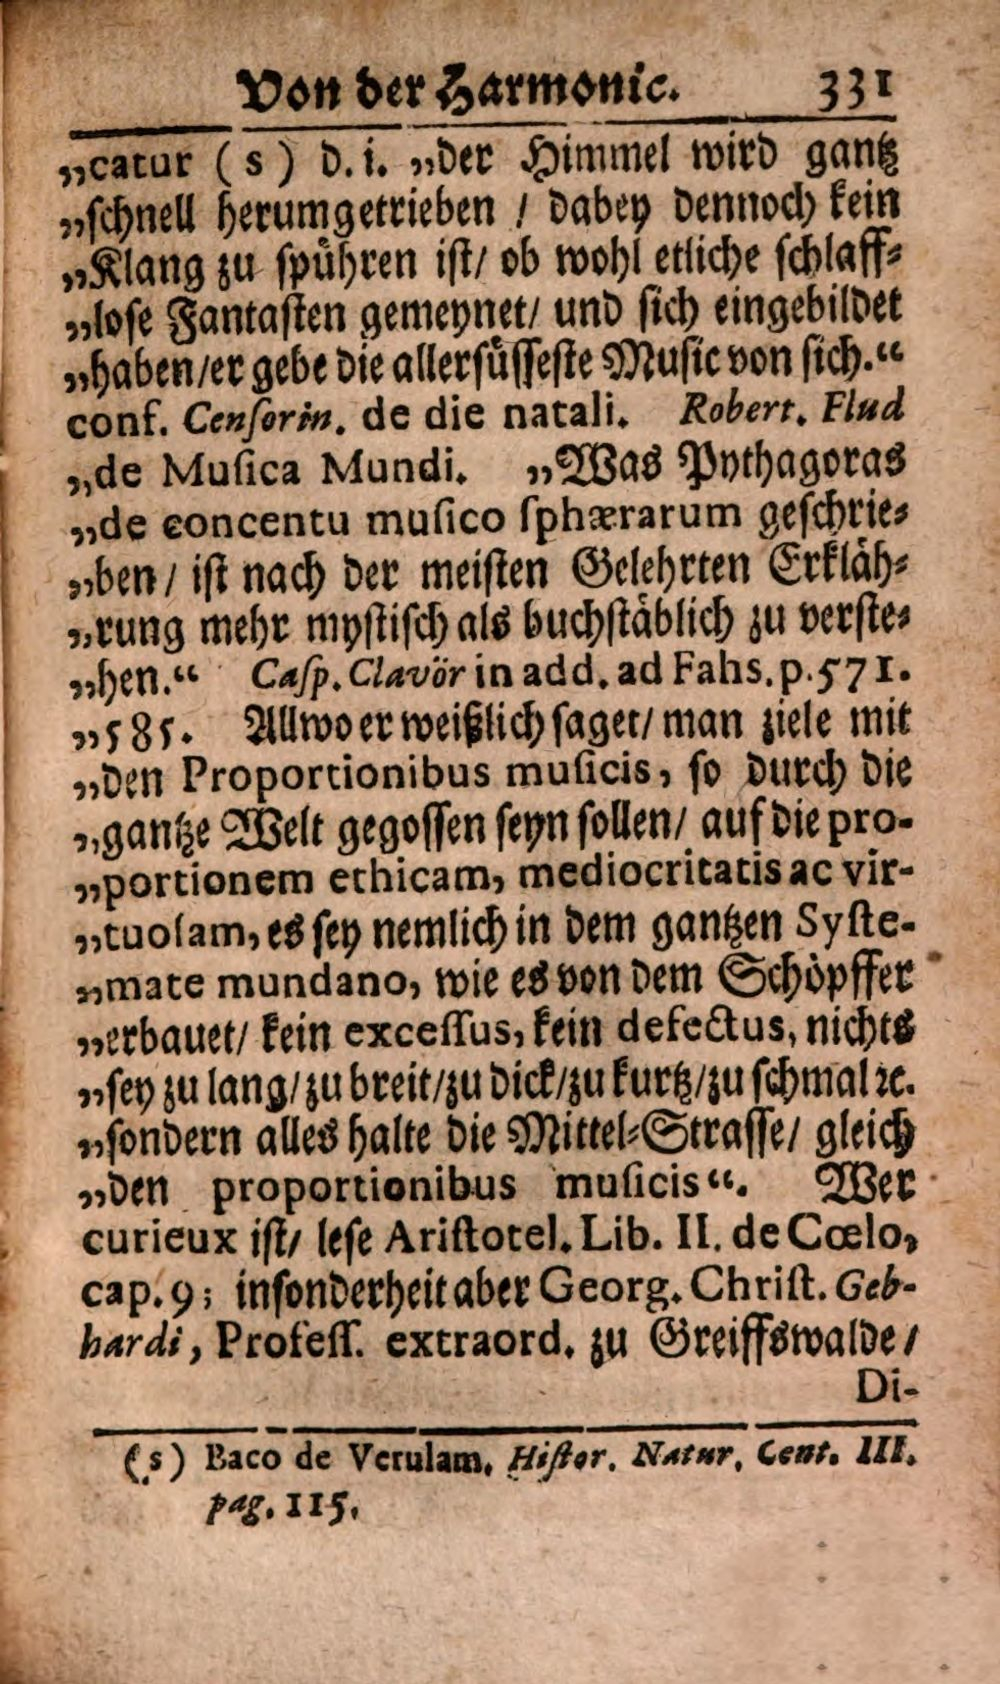 Von der Harmonie. 331
„catur (s) d. i. „der Himmel wird gantz
„schnell herumgetrieben / dabey dennoch kein
„Klang zu spühren ist/ ob wohl etliche schlaff⸗
„lose Fantasten gemeynet/ und sich eingebildet
„haben/er gebe die allersüsseste Music von sich.“
conf. Censorin. de die natali. Robert. Flud
„de Musica Mundi. „Was Pythagoras
„de concentu musico sphærarum geschrie⸗
„ben / ist nach der meisten Gelehrten Erkläh⸗
„rung mehr mystisch als buchstäblich zu verste⸗
„hen.“ Casp. Clavör in add. ad Fahs. p. 571.
„585. Allwo er weißlich saget/ man ziele mit
„den Proportionibus musicis, so durch die
„gantze Welt gegossen seyn sollen/ auf die pro-
„portionem ethicam, mediocritatis ac vir-
„tuosam, es sey nemlich in dem gantzen Syste-
„mate mundano, wie es von dem Schöpffer
„erbauet/ kein excessus, kein defectus, nichts
„sey zu lang/zu breit/zu dick/zu kurtz/zu schmal ꝛc.
„sondern alles halte die Mittel⸗Strasse/ gleich
„den proportionibus musicis“. Wer
curieux ist/ lese Aristotel. Lib. II. de Cœlo,
cap. 9; insonderheit aber Georg. Christ. Geb-
hardi, Profess. extraord. zu Greiffswalde /
Di-
(s) Baco de Verulam, Histor. Natur, Cent. III.
pag. 115.